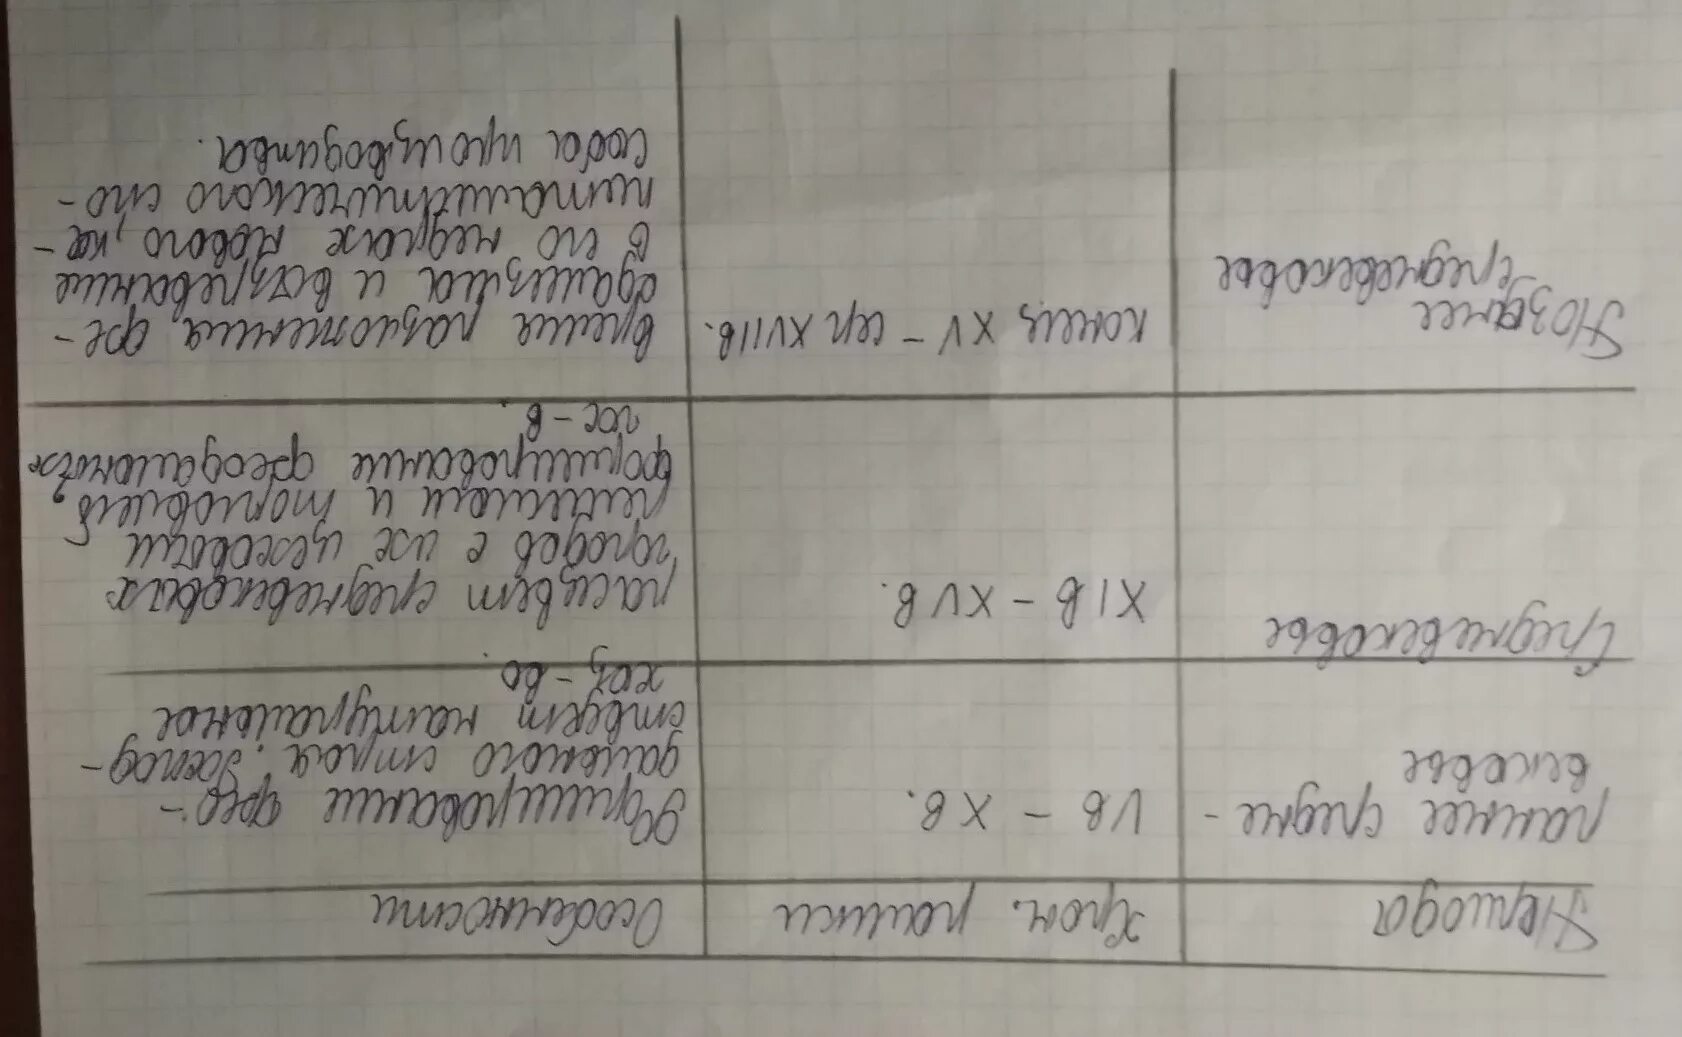 Периода
Хрон. рамки
Особенности
раннее средне-
вековье
VВ - XВ.
Формирование фео-
дального строя. Господ-
ствует натуральное
хоз-во.
Средневековье
XIВ - XVВ.
расцвет средневековых
городов с их цеховым
ремеслом и торговлей,
формирование феодальных
гос-в.
Позднее
средневековье
конец XV - сер XVIIВ.
время разложения фе-
одализма и вызревание
в его недрах нового, ка-
питалистического спо-
соба производства.